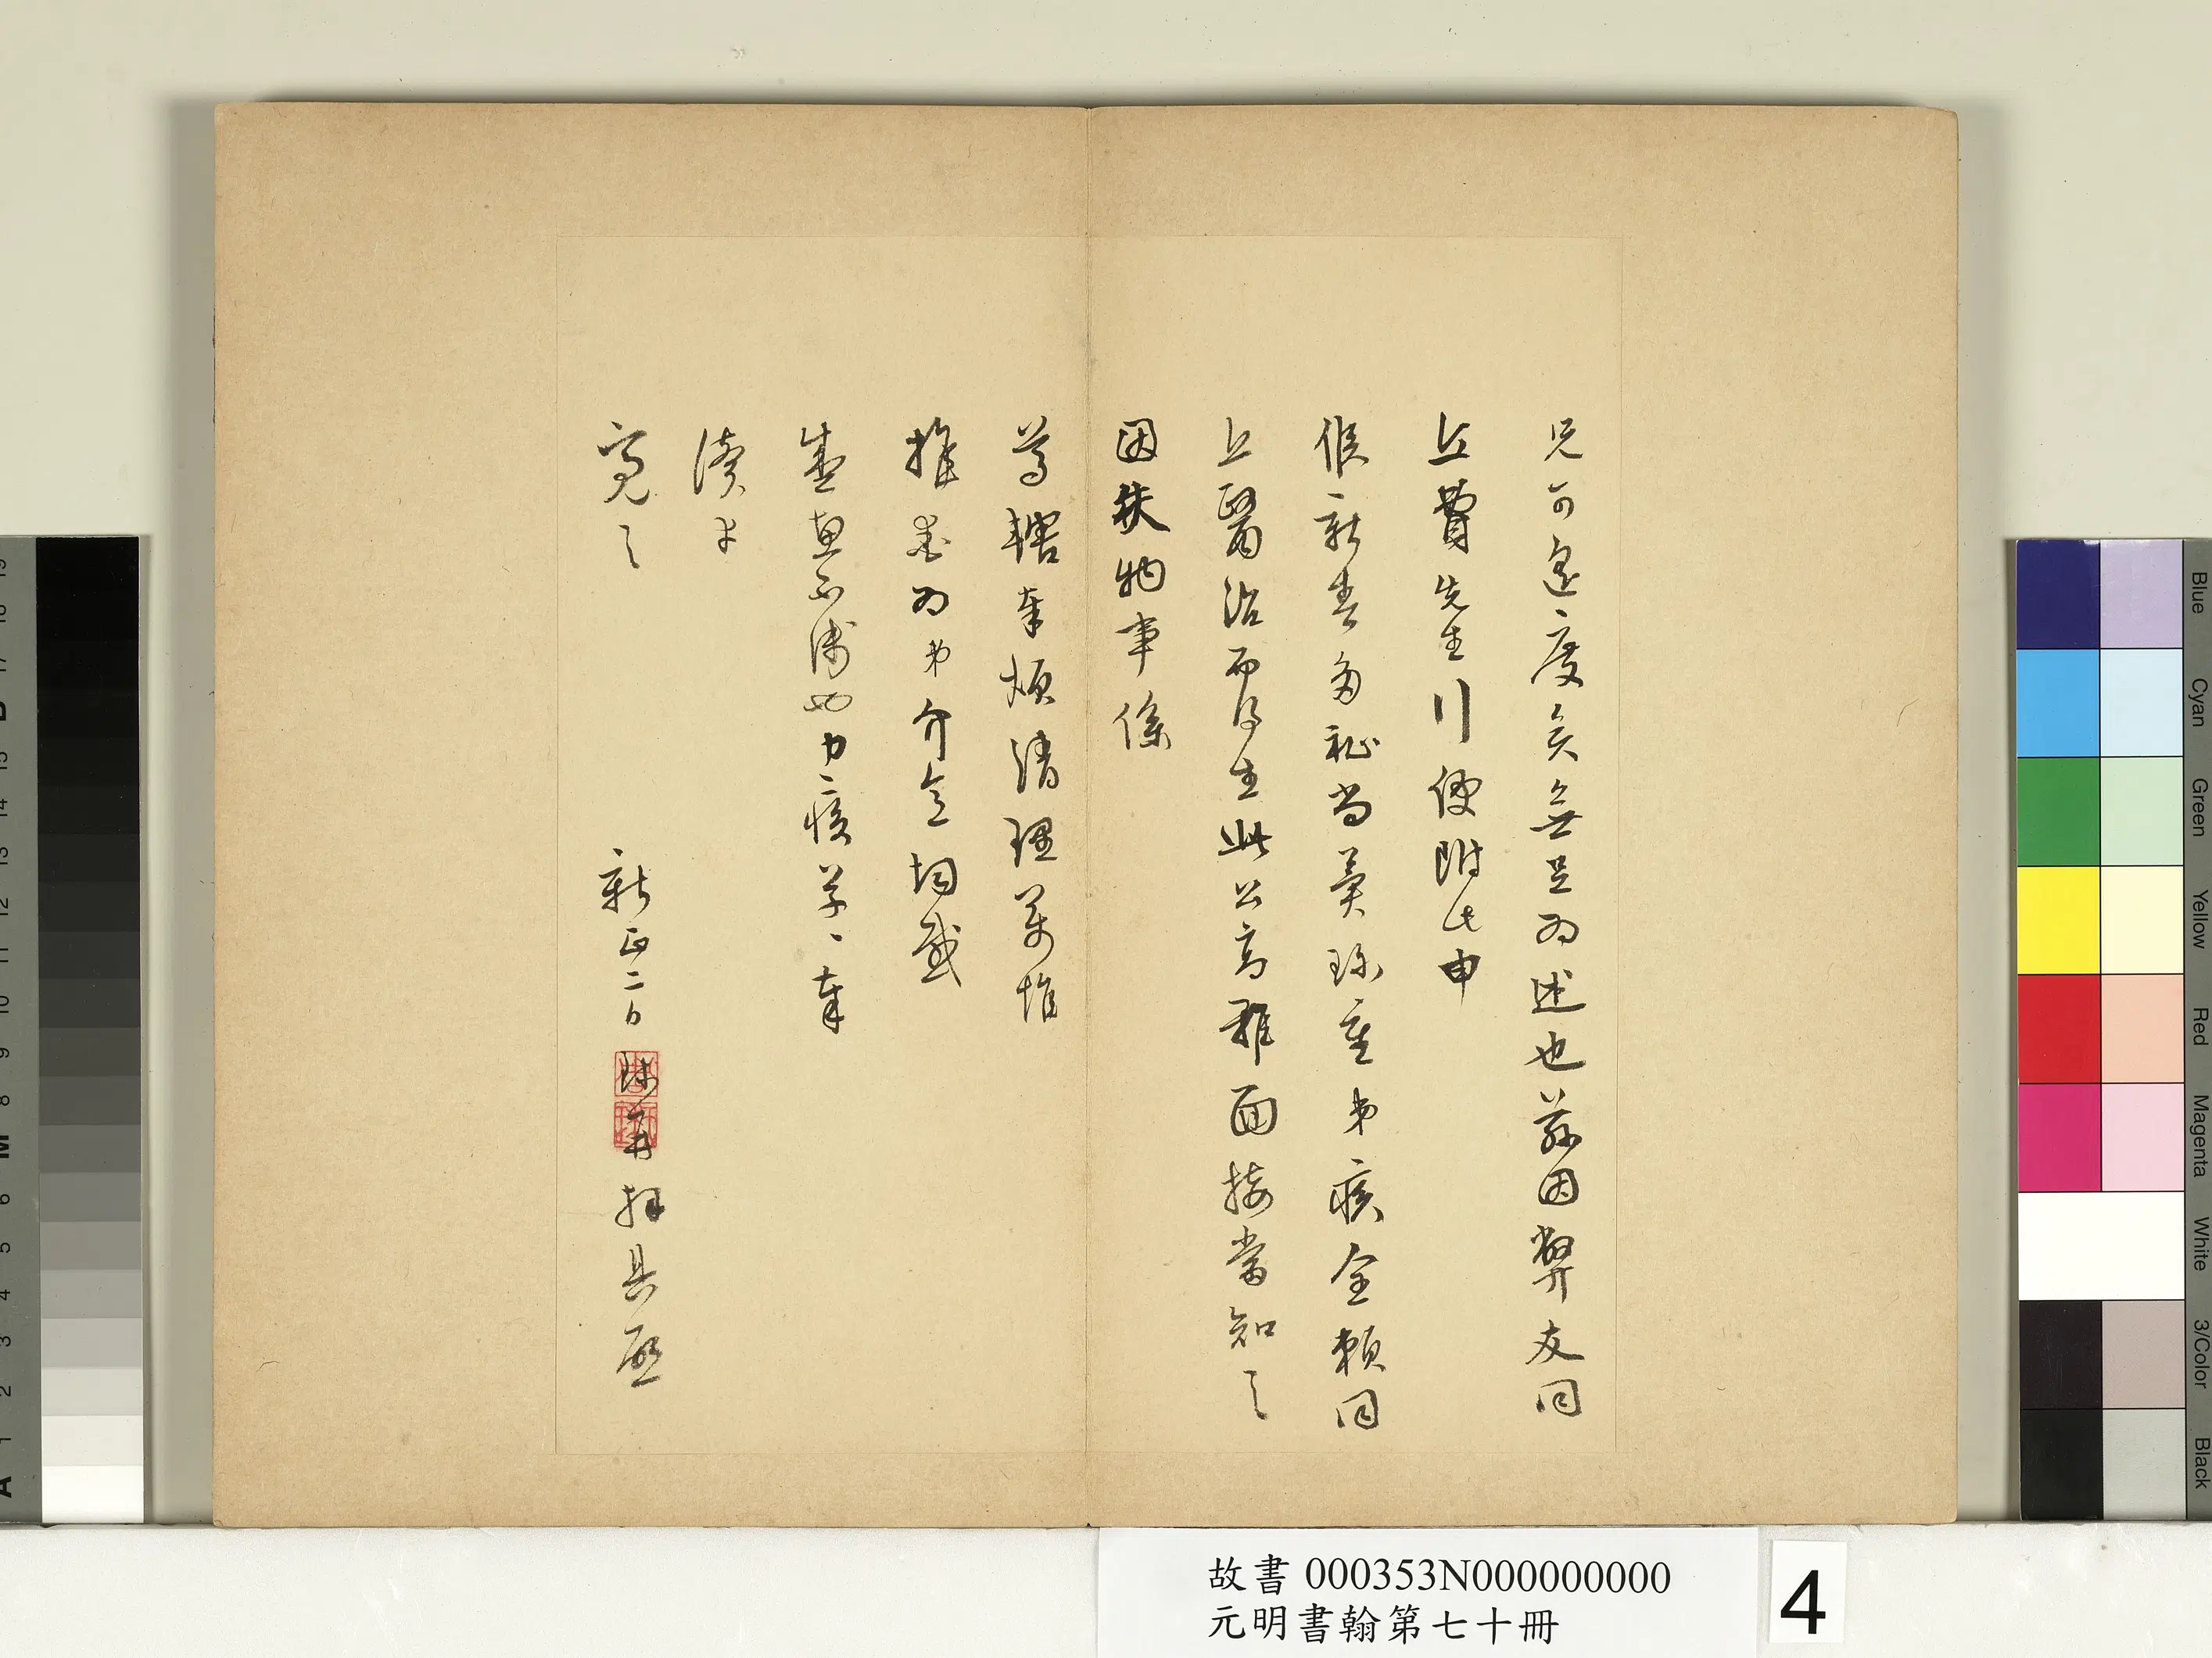 兄可遙度矣無足為述也茲因弊友同
立費先生行便附此申
候新春多祉尚冀珍重弟疾全賴同
立醫治而得生此公高雅面接當知之
因秩物事係
尊轄奉煩清理萬惟
推愛為弟介意均感
盛惠不淺也力疾草草奉
瀆幸
亮之
新正二日 弟 拜具啟
故書 000353N000000000
元明書翰第七十冊
4
Blue
Cyan
Green
Yellow
Red
Magenta
White
3/Color
Black
A 1 2 3 4 5 6 M 8 9 10 11 12 13 14 15 B 17 18 19